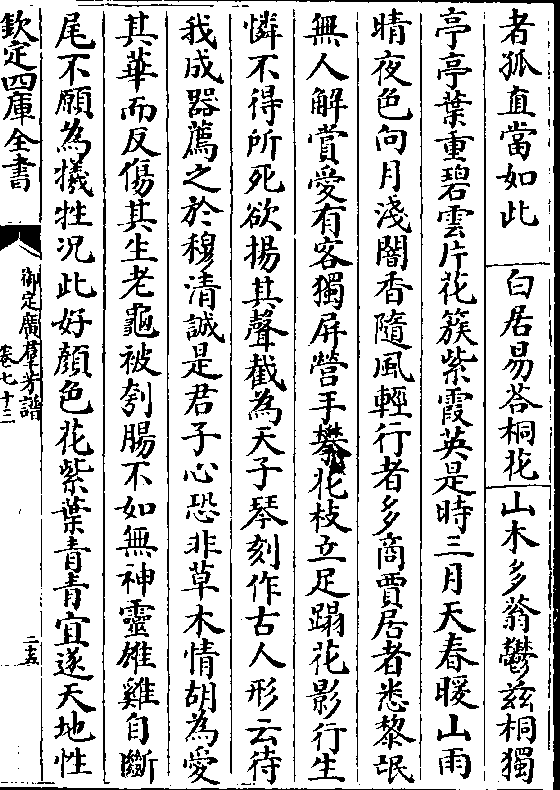 者孤直當如此 白居易答桐花 山木多蓊鬱茲桐獨
亭亭葉重碧雲片花簇紫霞英是時三月天春暖山雨
晴夜色向月淺闇香隨風輕行者多商賈居者悉黎氓
無人解賞愛有客獨屏營手攀花枝立足蹋花影行生
憐不得所死欲揚其聲截為天子琴刻作古人形云待
我成器薦之於穆清誠是君子心恐非草木情胡為愛
其華而反傷其生老龜被刳腸不如無神靈雄雞自斷
尾不願為犧牲况此好顔色花紫葉青青宜遂天地性
欽定四庫全書
御定廣羣芳譜
卷七十三
二十五